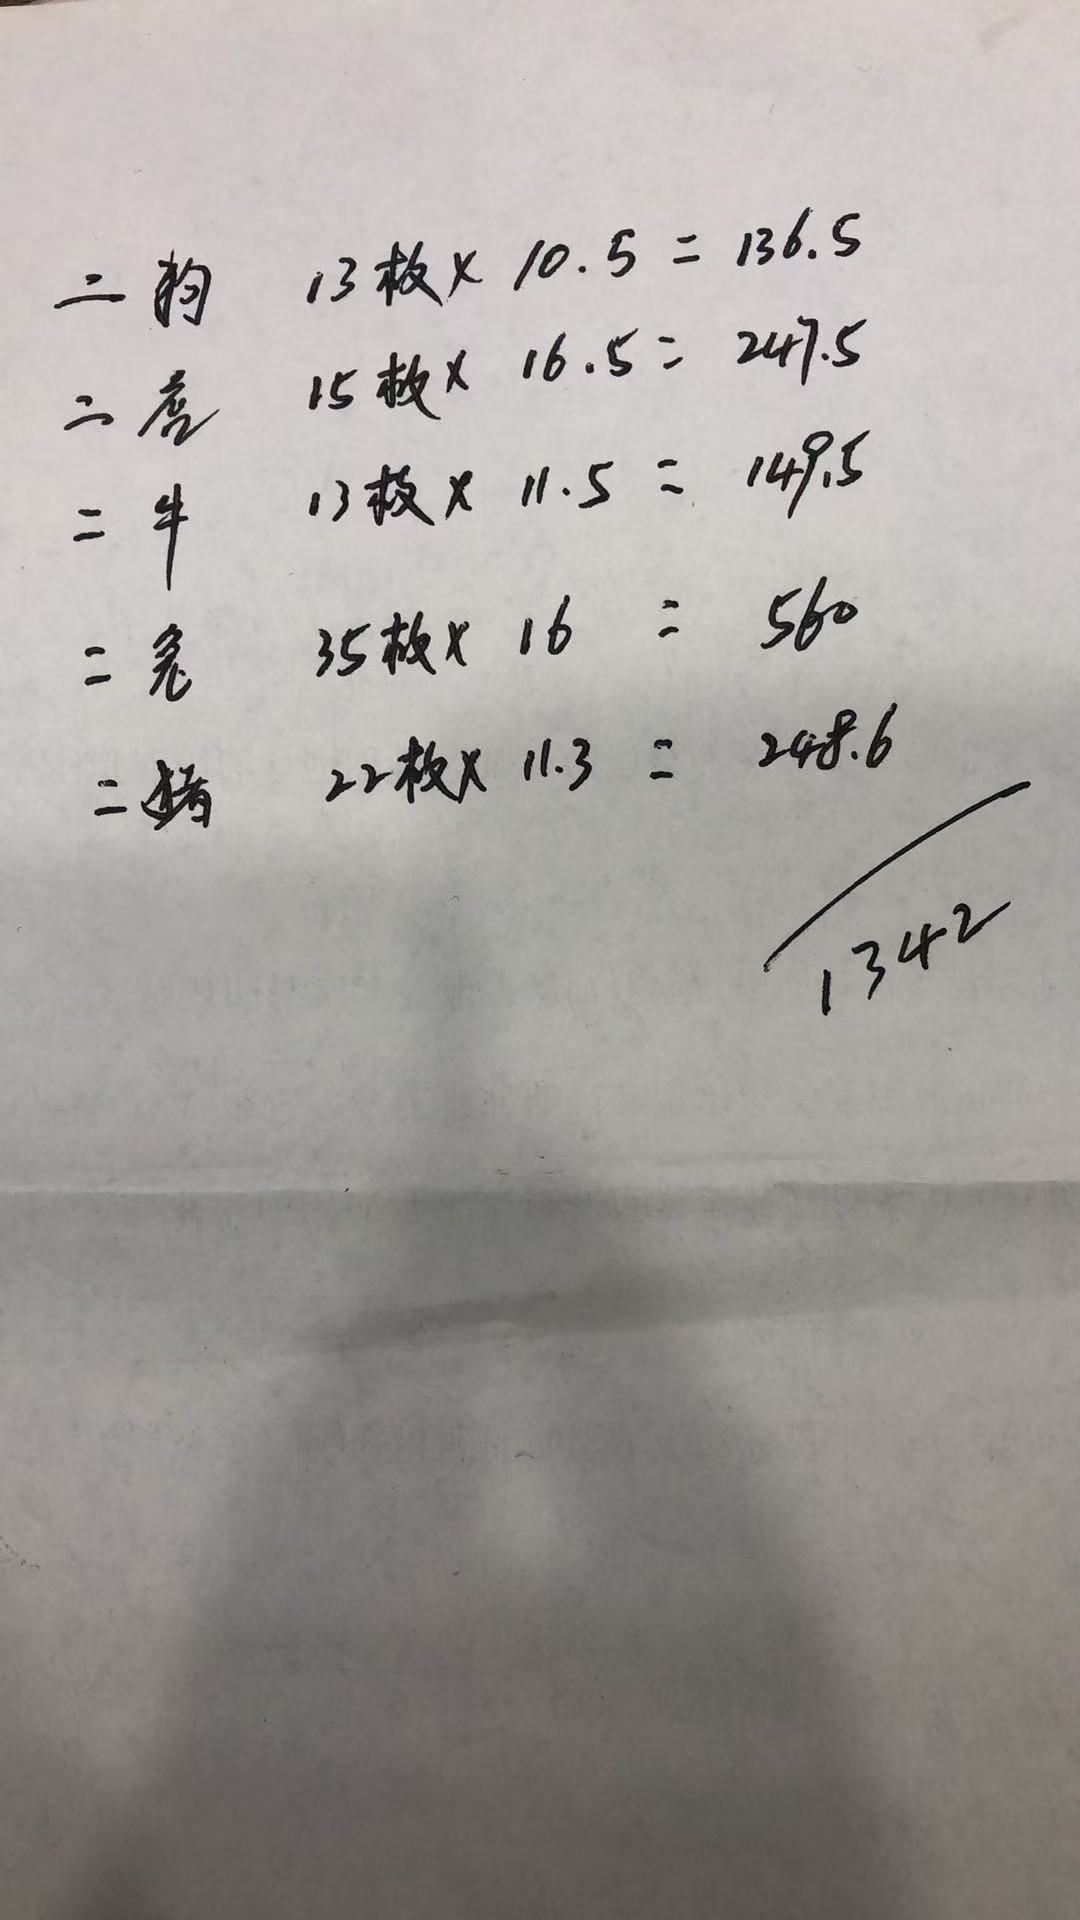 二狗 13枚×10.5=136.5
二虎 15枚×16.5=247.5
二牛 13枚×11.5=149.5
二兔 35枚×16=560
二猪 22枚×11.3=248.6
1342